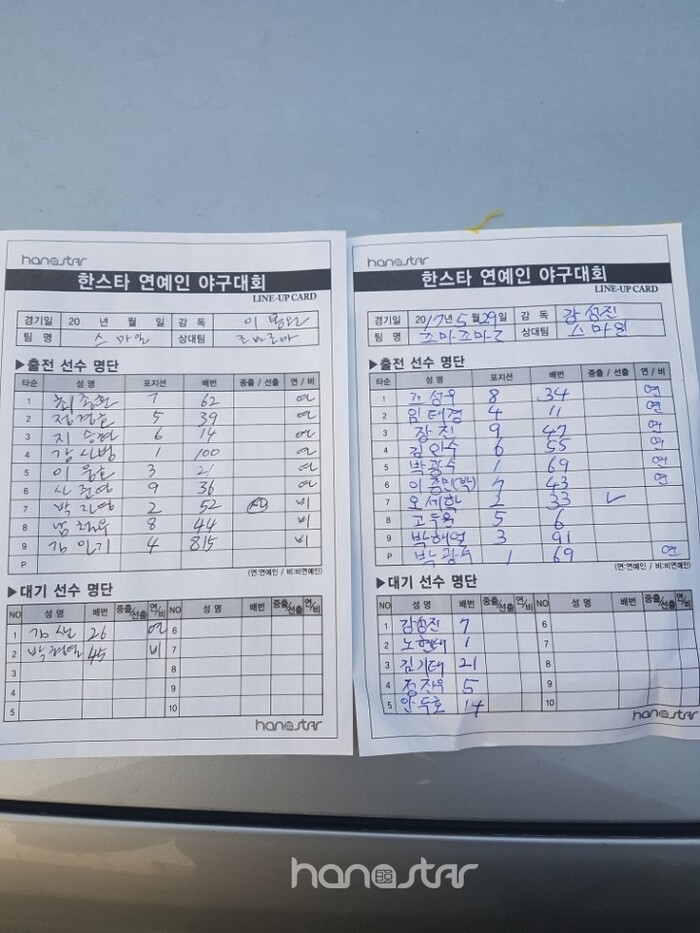 hanostar
한스타 연예인 야구대회
LINE-UP CARD
경기일 20 년 월 일 감 독
팀 명 스마일 상대팀 조마조마
▶출전 선수 명단
타순 성 명 포지션 배번 중출 / 선출 연 / 비
1 최종환 7 62 연
2 5 39 연
3 지승현 6 14 연
4 1 100 연
5 3 21 연
6 9 36 연
7 박지영 2 52 비
8 8 44 비
9 김인기 4 815 비
P
(연:연예인 / 비:비연예인)
▶대기 선수 명단
NO 성 명 배번 중출/선출 연/비 NO 성 명 배번 중출/선출 연/비
1 26 연 6
2 45 비 7
3 8
4 9
5 10
hanostar
hanostar
한스타 연예인 야구대회
LINE-UP CARD
경기일 2017년 5월 29일 감 독 강성진
팀 명 조마조마 상대팀 스마일
▶출전 선수 명단
타순 성 명 포지션 배번 중출 / 선출 연 / 비
1 성우 8 34 연
2 임태경 4 11 연
3 장진 9 47 연
4 김인수 6 55 연
5 박광수 1 69 연
6 이종민(박) 7 43 연
7 오세학 2 33 ✓
8 고두옥 5 6
9 박해영 3 91
P 박광수 1 69 연
(연:연예인 / 비:비연예인)
▶대기 선수 명단
NO 성 명 배번 중출/선출 연/비 NO 성 명 배번 중출/선출 연/비
1 강성진 7 6
2 노현태 1 7
3 김기태 21 8
4 5 9
5 안두호 14 10
hanostar
hanostar